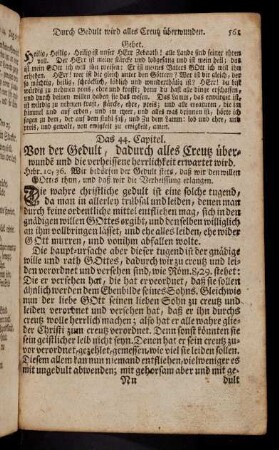 Durch Gedult wird alles Creutz überwunden. 561
Gebet.
Heilig, Heilig, Heilig ist unser HErr Zebaoth! alle lande sind seiner ehren
voll. Der HErr ist meine stärcke und lobgesang und ist mein heil; das
ist mein GOtt ich will ihn preisen: Er ist meines Vaters GOtt ich will ihn
erheben. HErr! wer ist dir gleich unter den Göttern? Wer ist dir gleich, der
so mächtig, schröcklich, löblich und wunderthätig ist? HErr! du bist
würdig zu nehmen preis, ehre und krafft; denn du hast alle dinge geschaffen,
und durch deinen willen haben sie das wesen, und sind geschaffen. Das lamm,
das erwürget ist, ist würdig zu nehmen krafft und reichthum, und weisheit,
und stärcke, und ehre, und preis, und lob,
Lamm: lob und ehre, und preis, und gewalt, von ewigkeit zu ewigkeit, Amen.
Das 44. Capitel.
Von der Gedult, dadurch alles Creutz über-
wunden und die verheissene herrlichkeit erwartet wird.
Hebr. 10, 36. Wir bedörffen der Gedult stets, daß wir den willen
GOttes thun, und daß wir die Verheissung erlangen.
Die wahre christliche gedult ist eine solche tugend,
da man in allerley trübsal und leiden, denen man
durch keine ordentliche mittel entfliehen mag, sich in den
gnädigen willen GOttes ergibt, und denselben williglich
an ihm vollbringen lässet, und ehe alles leiden, ehe wider
GOtt murren, und von ihm abfallen wolte.
Die haupt-ursache aber dieser tugend ist der gnädige
wille und rath GOttes, dadurch wir zu creutz und lei-
den verordnet und versehen sind, wie Röm. 8/29. stehet:
Die er versehen hat, die hat er verordnet, daß sie sollen
ähnlich werden dem Ebenbilde seines Sohns. Gleichwie
nun der liebe GOtt seinen lieben Sohn zu creutz und
leiden verordnet und versehen hat, daß er ihn durchs
creutz wolle herrlich machen; also hat er alle wahre glie-
der Christi zum creutz verordnet. Denn sonst könnten sie
sein geistlicher leib nicht seyn. Denen hat er sein creutz zu-
vor verordnet, gezehlet, gemessen, wie viel sie leiden sollen.
Diesem allem kan niemand entfliehen, viel weniger es
mit ungedult abwenden; mit gehorsam aber und mit ge-
Nn dult